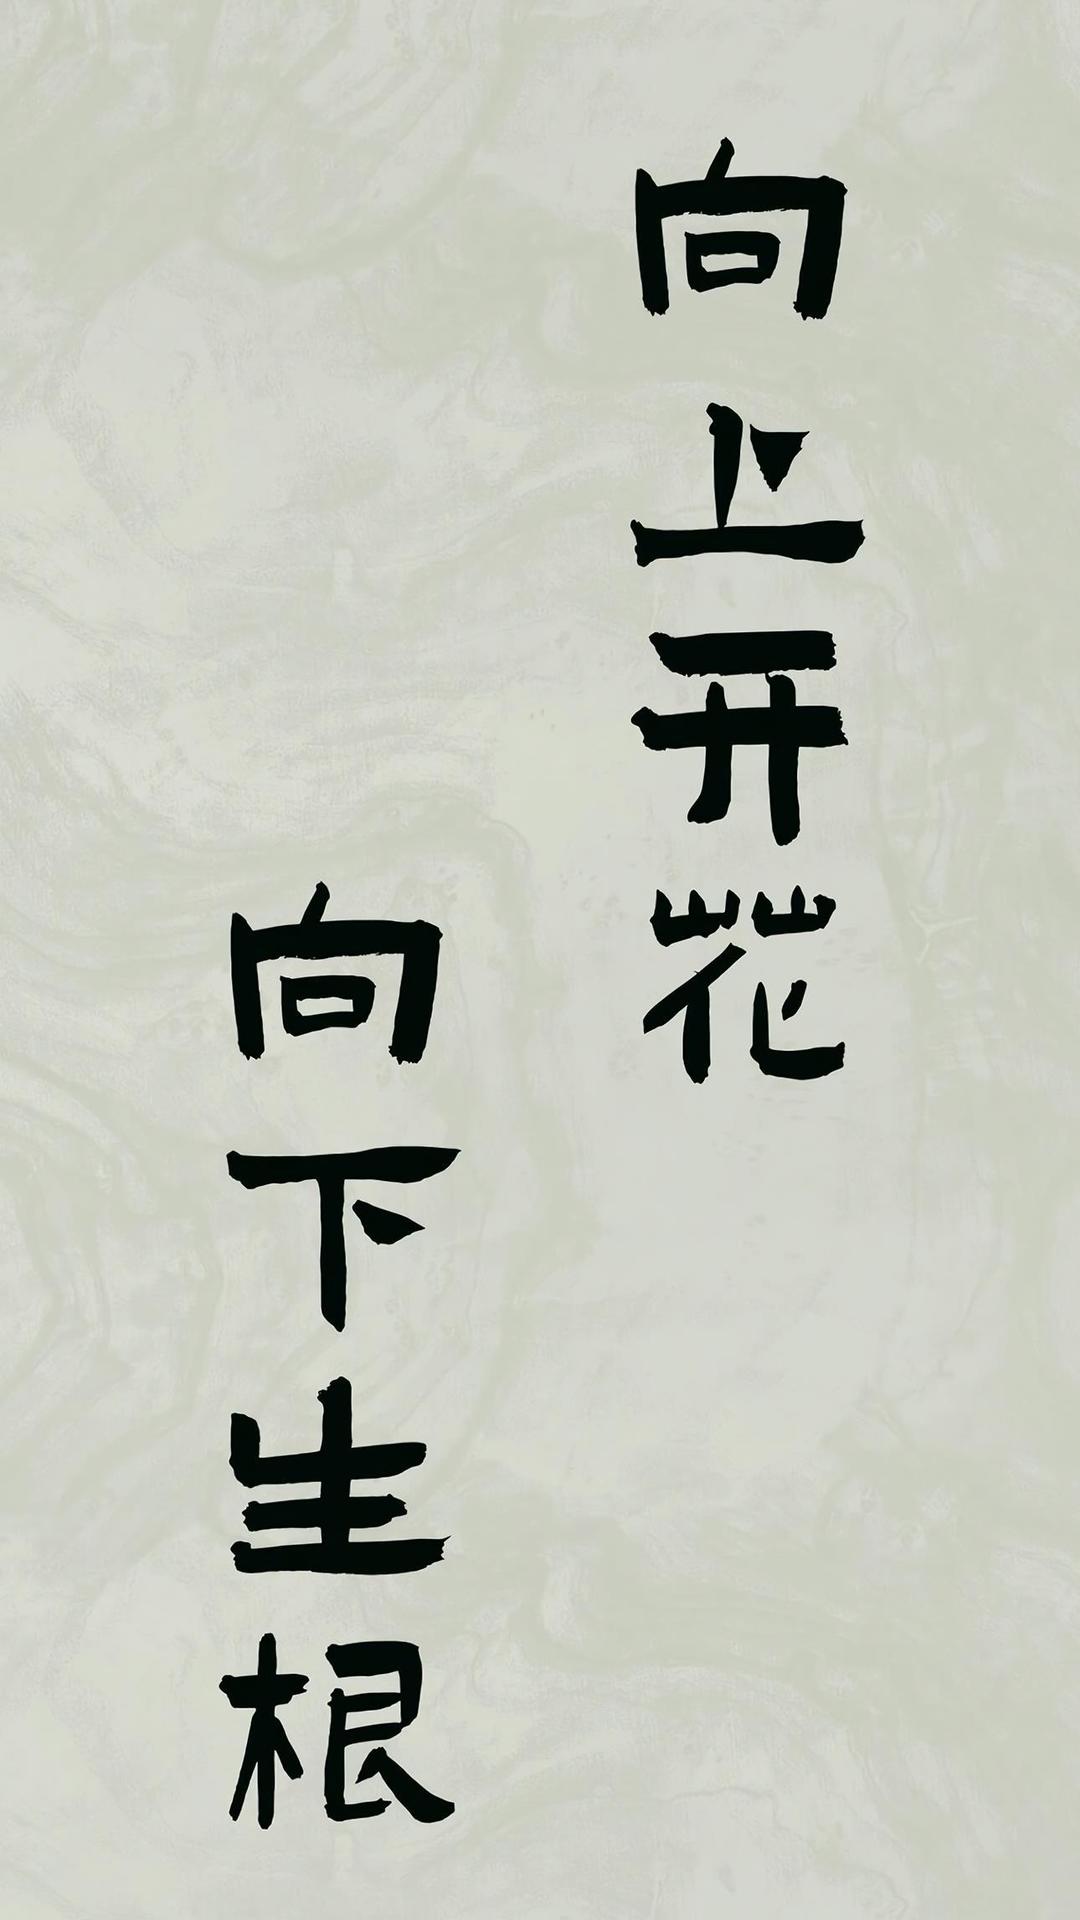 向上开花
向下生根